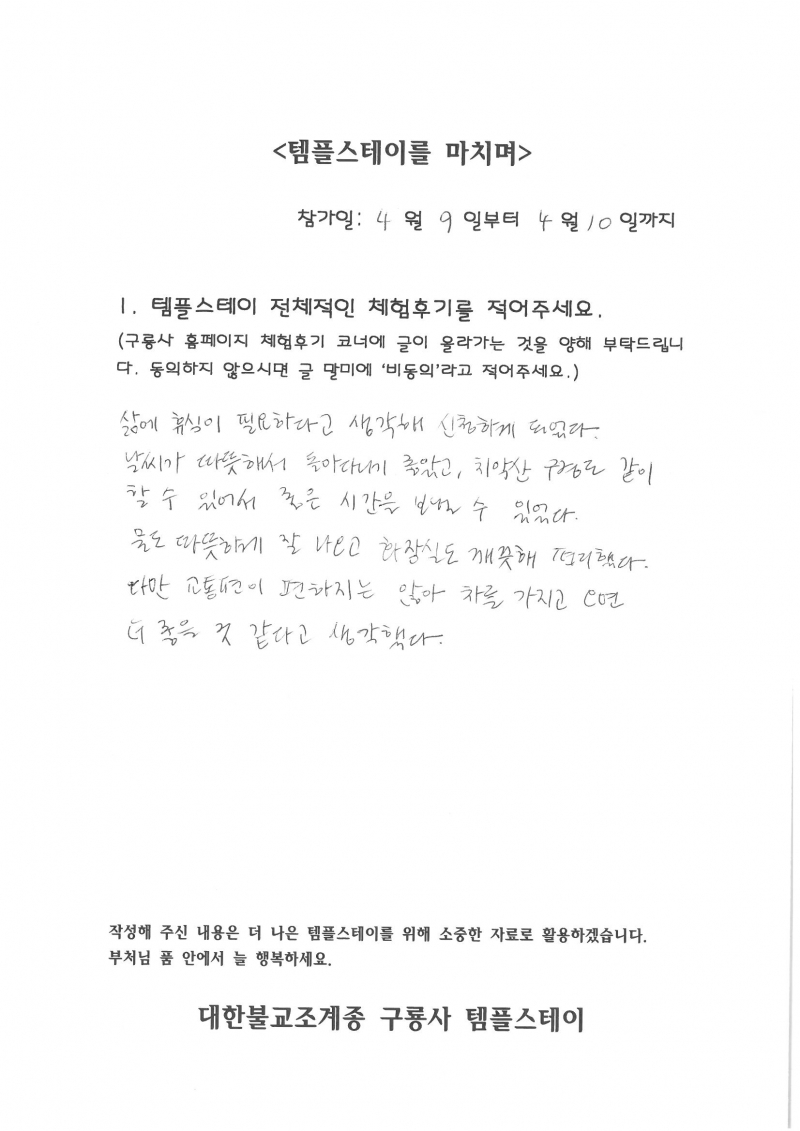 <템플스테이를 마치며>
참가일: 4 월 9 일부터 4 월 10 일까지
1. 템플스테이 전체적인 체험후기를 적어주세요.
(구룡사 홈페이지 체험후기 코너에 글이 올라가는 것을 양해 부탁드립니
다. 동의하지 않으시면 글 말미에 '비동의'라고 적어주세요.)
삶에 휴식이 필요하다고 생각해 신청하게 되었다.
날씨가 따뜻해서 돌아다니기 좋았고, 치악산 구경도 같이
할 수 있어서 좋은 시간을 보낼 수 있었다.
물도 따뜻하게 잘 나오고 화장실도 깨끗해 편리했다.
다만 교통편이 편하지는 않아 차를 가지고 오면
더 좋을 것 같다고 생각했다.
작성해 주신 내용은 더 나은 템플스테이를 위해 소중한 자료로 활용하겠습니다.
부처님 품 안에서 늘 행복하세요.
대한불교조계종 구룡사 템플스테이